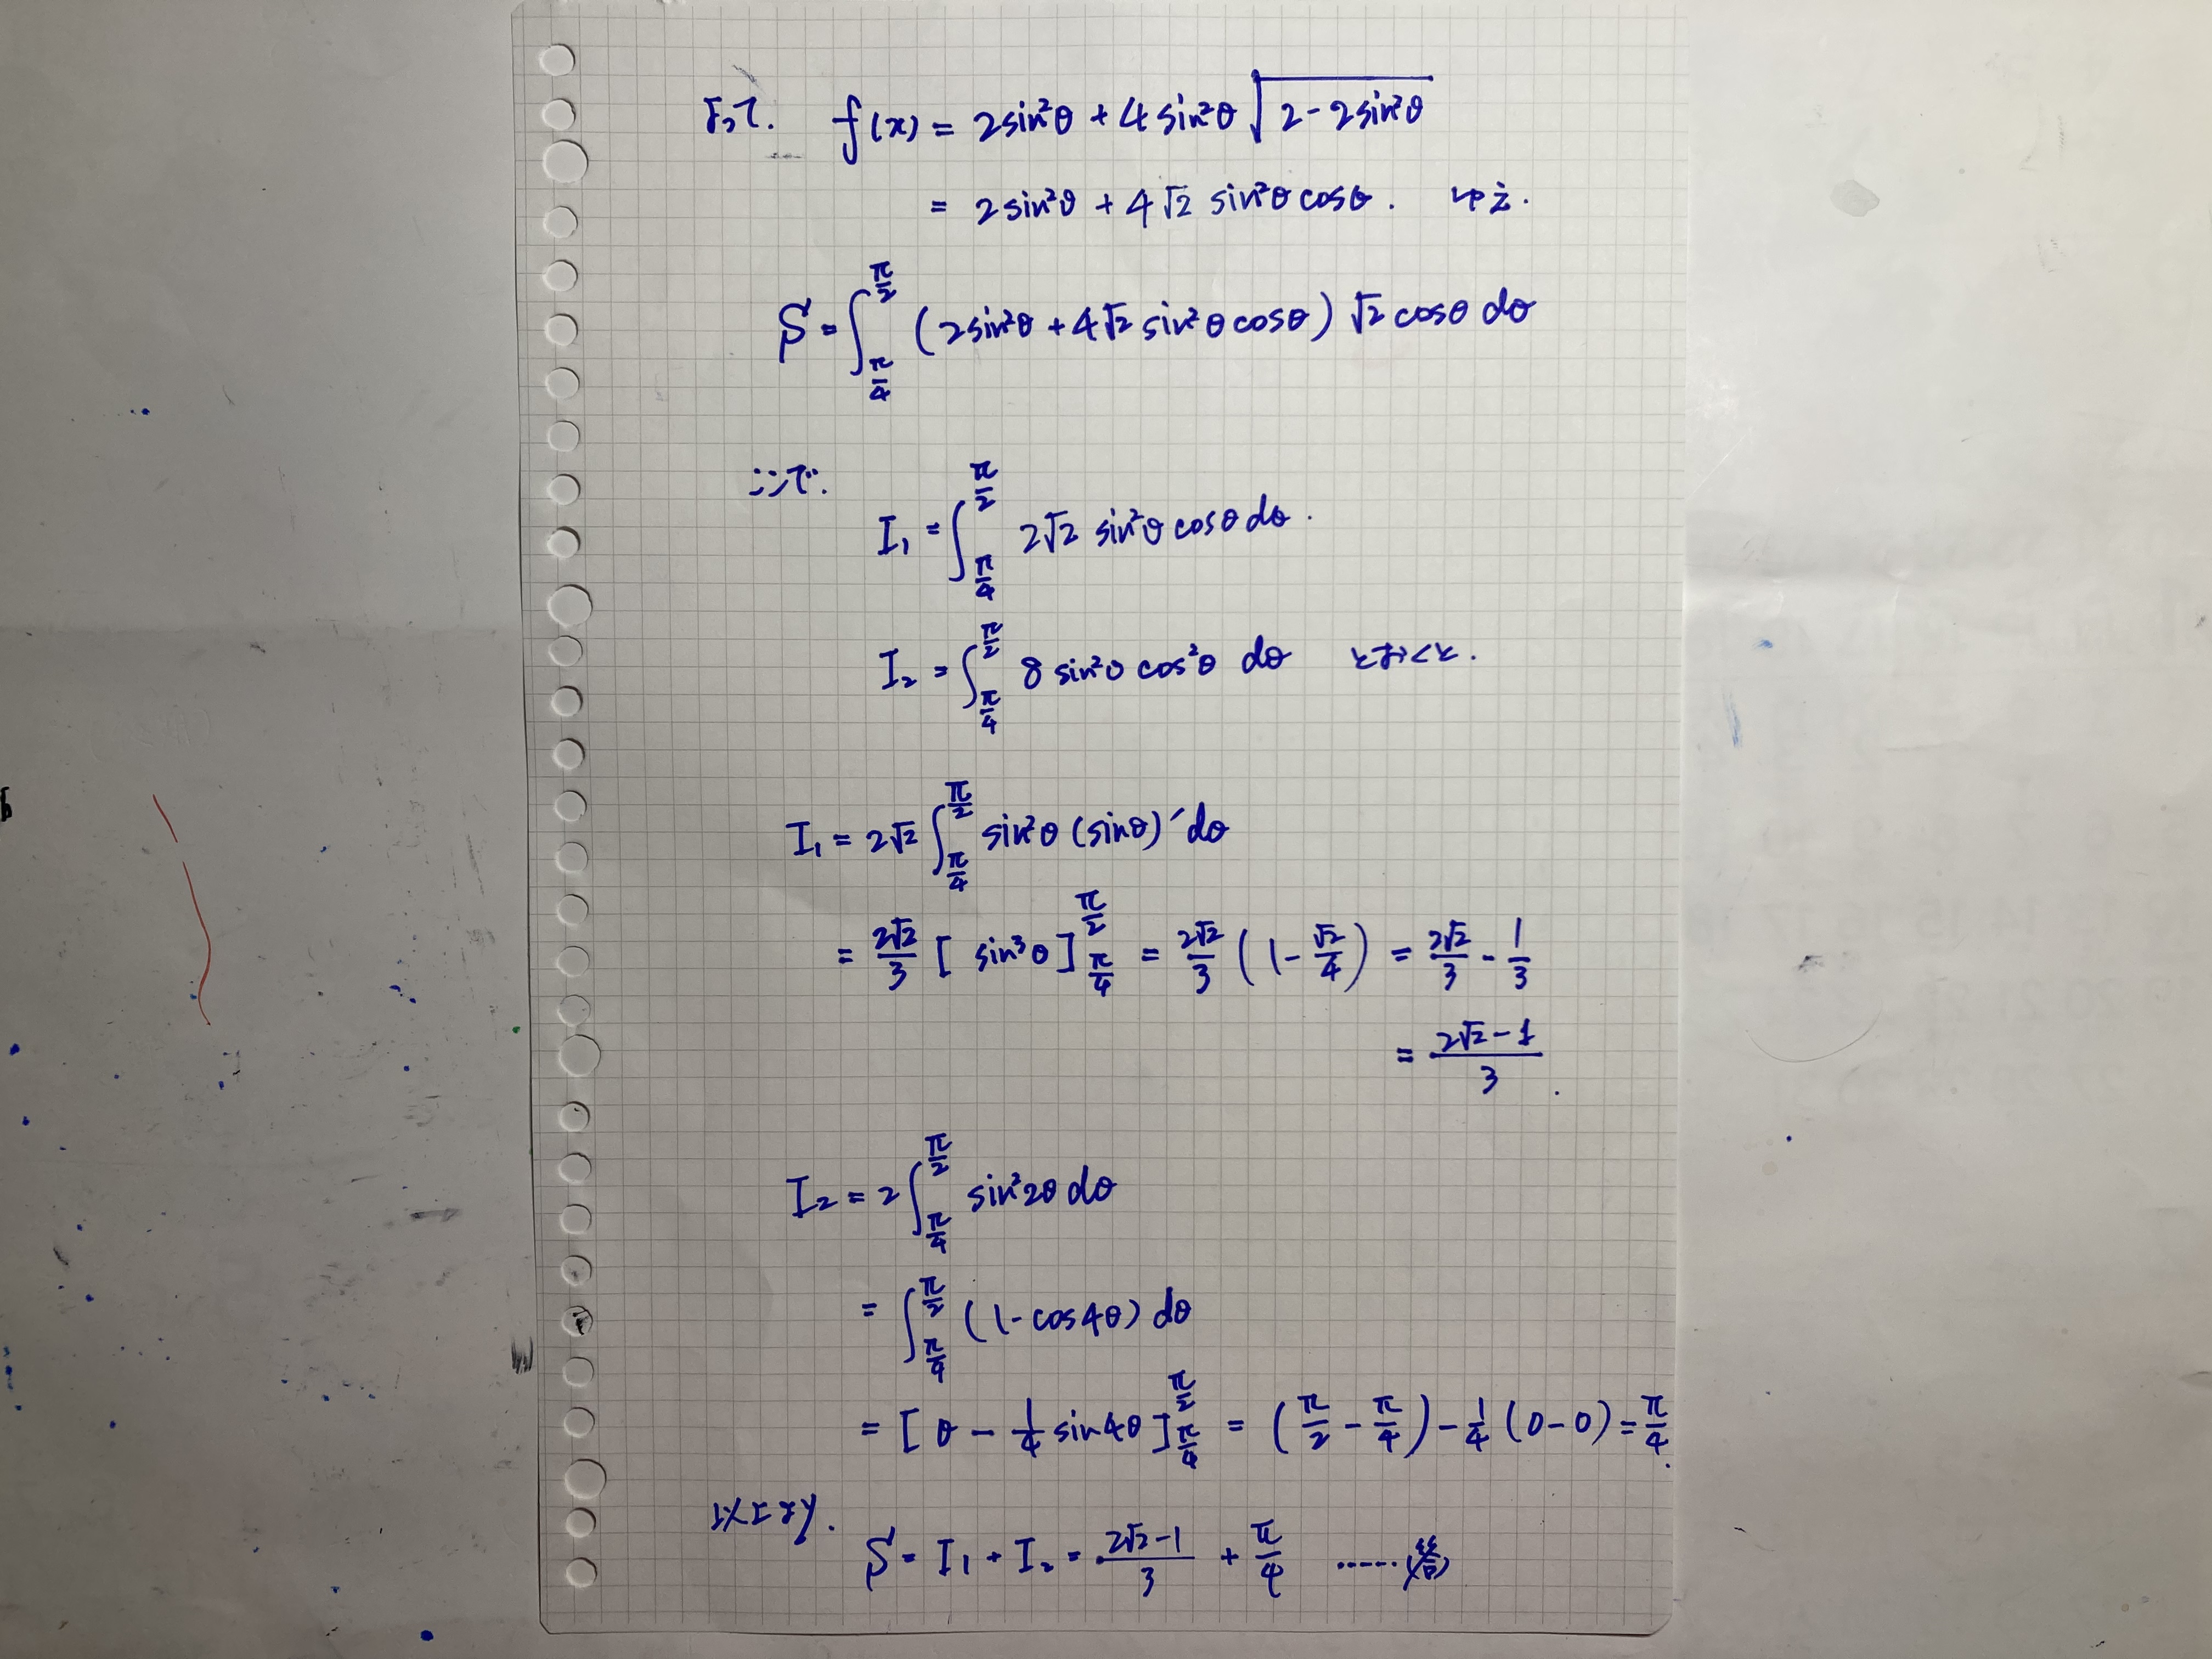 よって. f(x) = 2sin²θ + 4sin²θ√(2-2sin²θ)
= 2sin²θ + 4√2 sin²θ cosθ. ゆえ.
S = ∫_{π/4}^{π/2} (2sin²θ + 4√2 sin²θ cosθ) √2 cosθ dθ
ここで.
I₁ = ∫_{π/4}^{π/2} 2√2 sin²θ cosθ dθ.
I₂ = ∫_{π/4}^{π/2} 8 sin²θ cos²θ dθ とおくと.
I₁ = 2√2 ∫_{π/4}^{π/2} sin²θ (sinθ)′ dθ
= 2√2/3 [ sin³θ ]_{π/4}^{π/2} = 2√2/3 ( 1 - √2/4 ) = 2√2/3 - 1/3
= (2√2-1)/3 .
I₂ = 2 ∫_{π/4}^{π/2} sin²2θ dθ
= ∫_{π/4}^{π/2} (1-cos4θ) dθ
= [ θ - 1/4 sin4θ ]_{π/4}^{π/2} = ( π/2 - π/4 ) - 1/4 (0-0) = π/4.
以上より.
S = I₁ + I₂ = (2√2-1)/3 + π/4 ……(答)